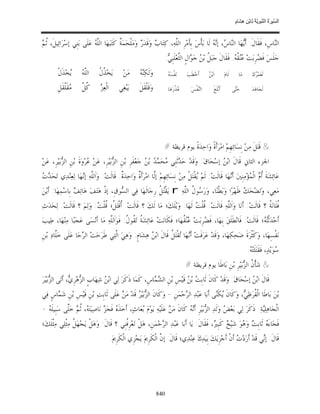 السيرة النبوية لابن هشام
النَّاسِ، فَقَالَ أَيُّهَا النَّاسُ، إنَّهُ لَا بَأْسَ بِأَمْرِ اللَّهِ، كِتَابٌ وَقَدَرٌ وَمَلْحَمَةٌ كَتَبَهَا اللَّهُ عَلَى بَنِي إسْرَائِيلَ، ثُمَّ
جَلَسَ فَضُرِبَتْ عُنُقُهُ. فَقَالَ جَبَلُ بْنُ جَوَّالٍ الثَّعْلَبِيُّ:
لَعَمْرُكَ مَا لَامَ ابْنُ أَخْطَبَ نَفْسَهُ وَلَكِنَّهُ مَنْ يَخْذُلُ اللَّهُ يُخْذَلُ
لَجَاهَدَ حَتَّى أَبْلَغَ النَّفْسَ عُذْرَهَا وَقَلْقَلَ يَبْغِي الْعِزَّ كُلَّ مُقَلْقَلِ
// قَتْلُ مِنْ نِسَائِهِمْ امْرَأَةً وَاحِدَةً يوم قريظة //
الجزء الثاني قَالَ ابْنُ إسْحَاقَ: وَقَدْ حَدَّثَنِي مُحَمَّدُ بْنُ جَعْفَرِ بْنِ الزُّبَيْرِ، عَنْ عُرْوَةَ بْنِ الزُّبَيْرِ، عَنْ
عَائِشَةَ أُمِّ الْمُؤْمِنِينَ أَنَّهَا قَالَتْ: لَمْ يُقْتَلْ مِنْ نِسَائِهِمْ إلَّا امْرَأَةٌ وَاحِدَةٌ. قَالَتْ: وَاَللَّهِ إنَّهَا لِعِنْدِي تَحَدَّثُ
مَعِي، وَتَضْحَكُ ظَهْرًا وَبَطْنًا، وَرَسُولُ اللَّهِ ﷺ يَقْتُلُ رِجَالَهَا فِي السُّوقِ، إذْ هَتَفَ هَاتِفٌ بِاسْمِهَا: أَيْنَ
فُلَانَةُ ؟ قَالَتْ: أَنَا وَاَللَّهِ قَالَتْ: قُلْتُ لَهَا: وَيْلَكَ، مَا لَكَ ؟ قَالَتْ: أُقْتَلُ، قُلْتُ: وَلِمَ ؟ قَالَتْ: لِحَدَثٍ
أَحْدَثْتُهُ، قَالَتْ: فَانْطَلَقَ بِهَا، فَضُرِبَتْ عُنُقُهَا، فَكَانَتْ عَائِشَةُ تَقُولُ: فَوَاَللَّهِ مَا أَنْسَى عَجَبًا مِنْهَا، طِيبَ
نَفْسِهَا، وَكَثْرَةَ ضَحِكِهَا، وَقَدْ عَرَفَتْ أَنَّهَا تُقْتَلُ قَالَ ابْنُ هِشَامٍ: وَهِيَ الَّتِي طَرَحَتْ الرَّحَا عَلَى خَلَّادِ بْنِ
سُوَيْدٍ، فَقَتَلَتْهُ
// شَأْنُ الزُّبَيْرِ بْنِ بَاطَا يوم قريظة //
قَالَ ابْنُ إسْحَاقَ: وَقَدْ كَانَ ثَابِتُ بْنُ قَيْسِ بْنِ الشَّمَّاسِ، كَمَا ذَكَرَ لِي ابْنُ شِهَابٍ الزُّهْرِيُّ، أَتَى الزُّبَيْرَ
بْنَ بَاطَا الْقُرَظِيَّ، وَكَانَ يُكَنَّى أَبَا عَبْدِ الرَّحْمَنِ - وَكَانَ الزُّبَيْرُ قَدْ مَنَّ عَلَى ثَابِتِ بْنِ قَيْسِ بْنِ شَمَّاسٍ فِي
الْجَاهِلِيَّةِ. ذَكَرَ لِي بَعْضُ وَلَدِ الزُّبَيْرِ أَنَّهُ كَانَ مَنَّ عَلَيْهِ يَوْمَ بُعَاثٍ، أَخَذَهُ فَجَزَّ نَاصِيَتَهُ، ثُمَّ خَلَّى سَبِيلَهُ -
فَجَاءَهُ ثَابِتٌ وَهُوَ شَيْخٌ كَبِيرٌ، فَقَالَ: يَا أَبَا عَبْدِ الرَّحْمَنِ، هَلْ تَعْرِفُنِي ؟ قَالَ: وَهَلْ يَجْهَلُ مِثْلِي مِثْلَكَ،
قَالَ: إنِّي قَدْ أَرَدْتُ أَنْ أَجْزِيَكَ بِيَدِكَ عِنْدِي، قَالَ: إنَّ الْكَرِيمَ يَجْزِي الْكَرِيمَ
840